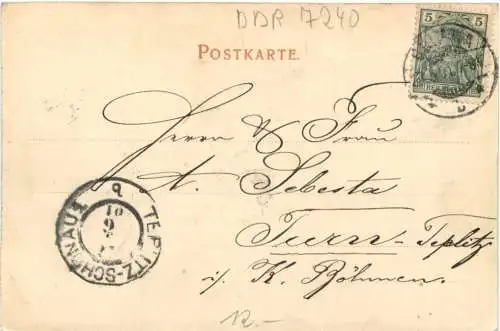 DDR 7240
POSTKARTE.
5
Herrn & Frau
A. Sebesta
Turn-Teplitz
i/ K. Böhmen.
TEPLITZ-SCHÖNAU 1
10
9
12.-